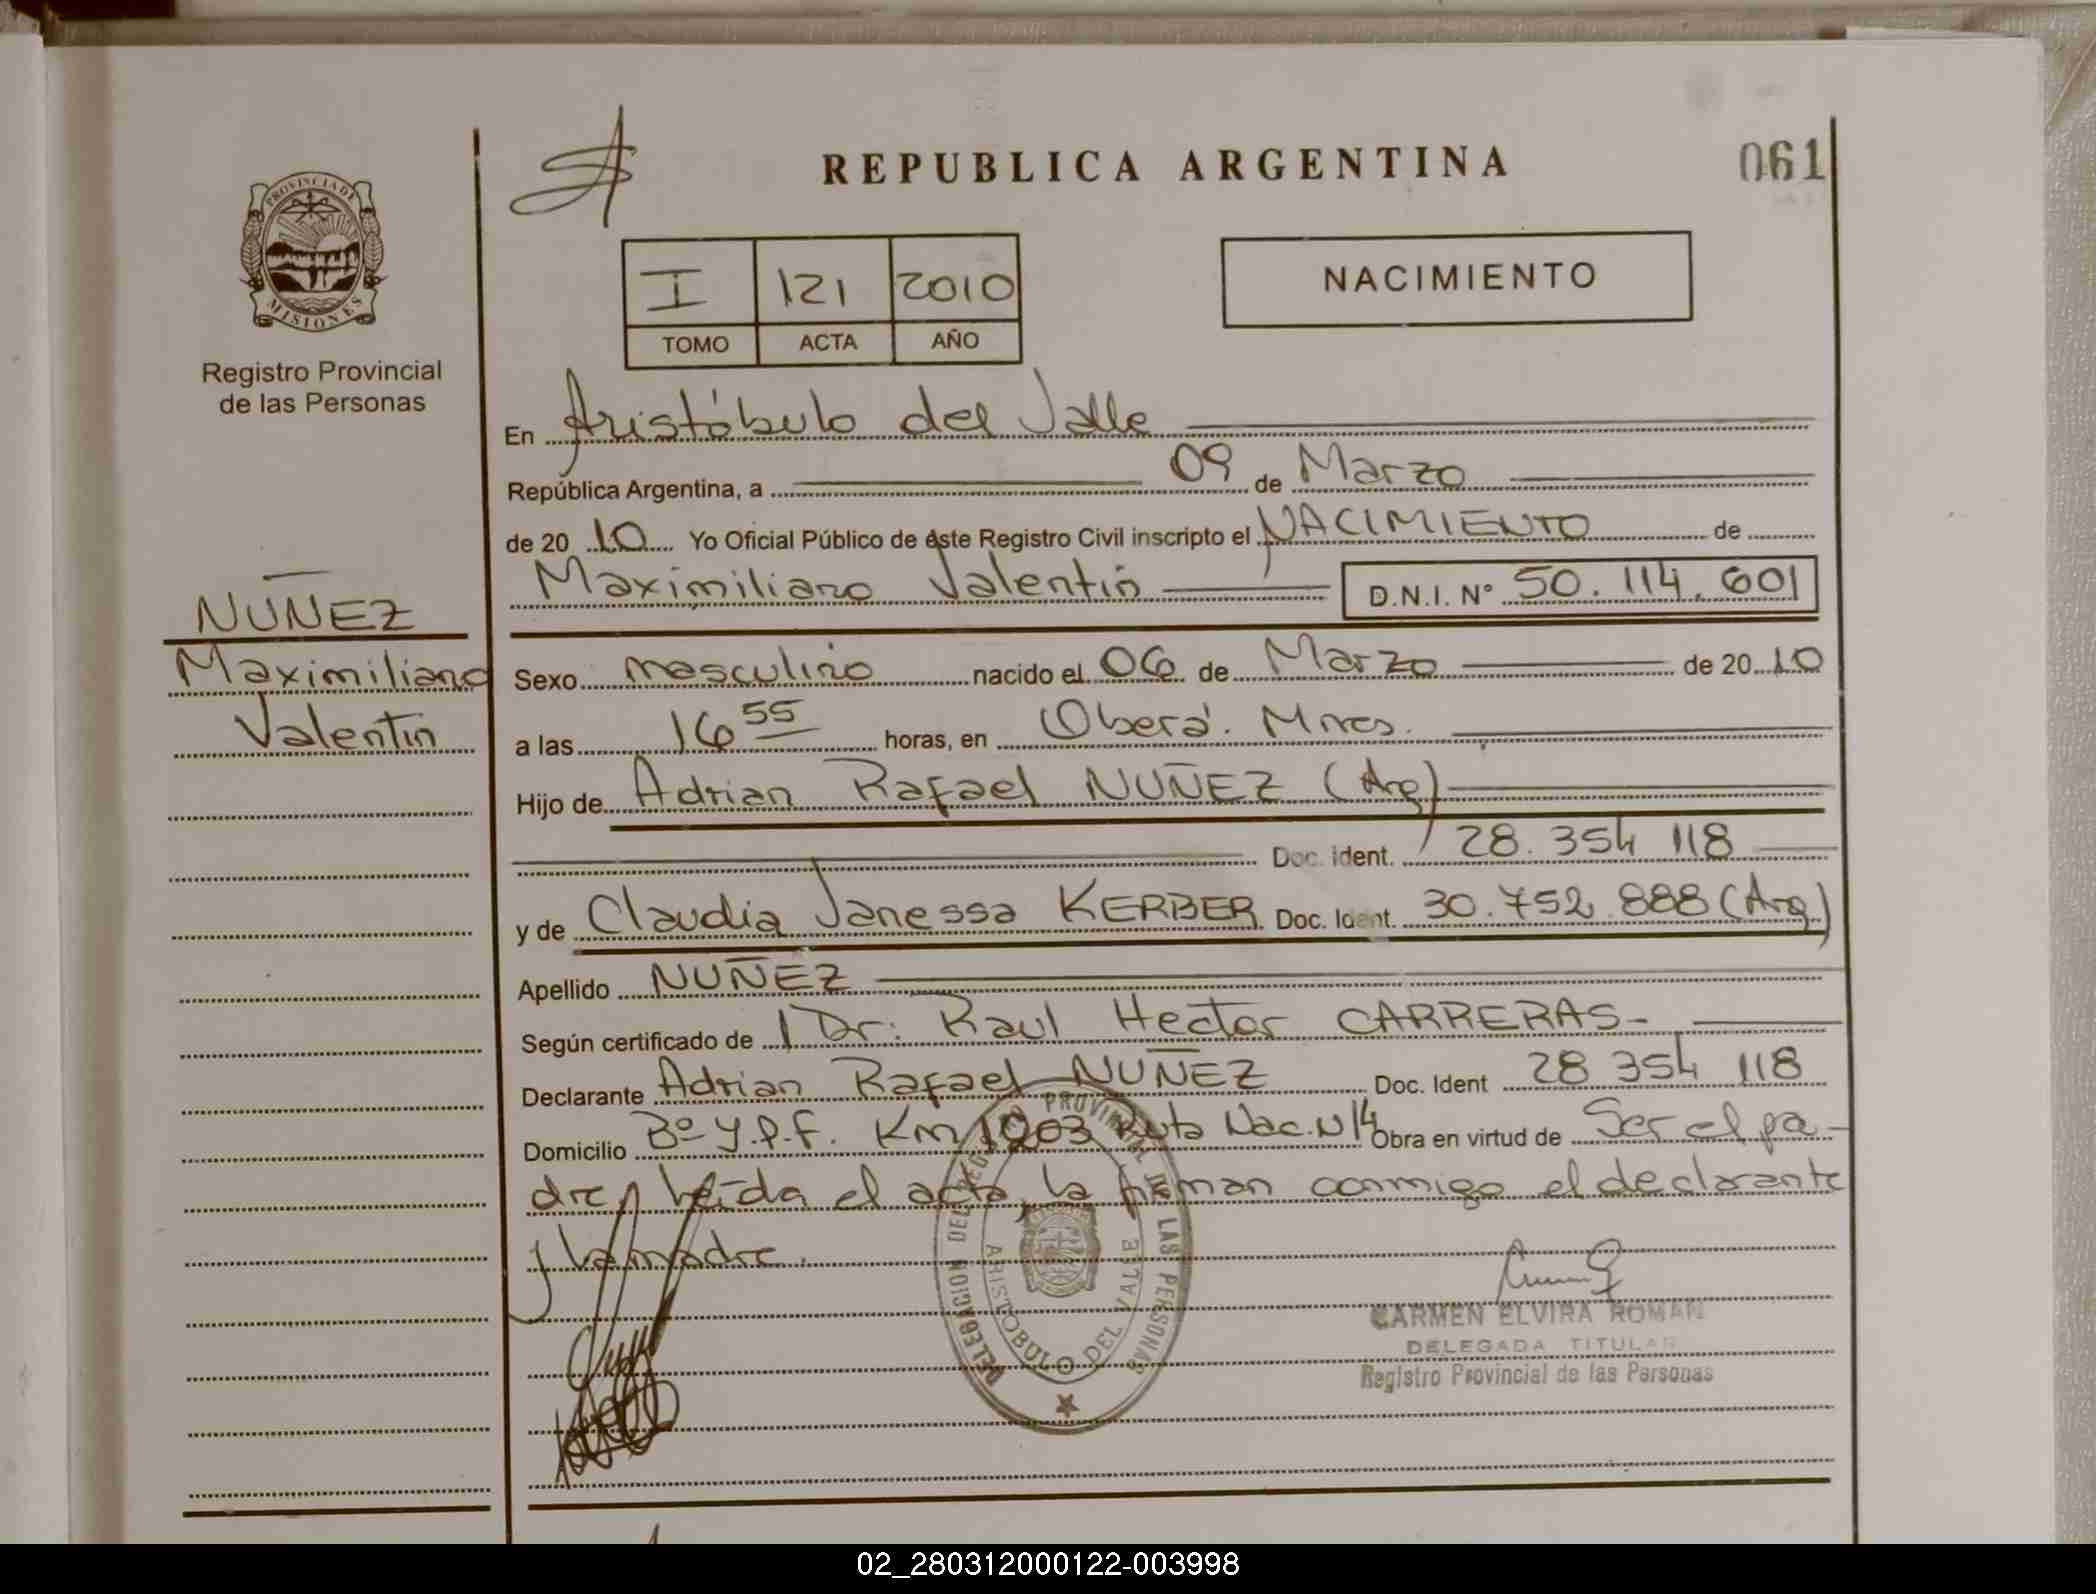 REPUBLICA ARGENTINA
061
PROVINCIA DE
MISIONES
Registro Provincial
de las Personas
I 121 2010
TOMO ACTA AÑO
NACIMIENTO
En Aristóbulo del Valle
República Argentina, a 09 de Marzo
de 20 10 Yo Oficial Público de éste Registro Civil inscripto el NACIMIENTO de
Maximiliano Valentin D.N.I. N° 50.114.601
NUÑEZ
Maximiliano
Valentin
Sexo masculino nacido el 06 de Marzo de 20 10
a las 16 55 horas, en Oberá. Mnes.
Hijo de Adrian Rafael NUÑEZ (Arg)
Doc. Ident. 28.354 118
y de Claudia Vanessa KERBER Doc. Ident. 30.752.888 (Arg)
Apellido NUÑEZ
Según certificado de Dr: Raul Hector CARRERAS-
Declarante Adrian Rafael NUÑEZ Doc. Ident 28 354 118
Domicilio Bº Y.P.F. Km 1203 Ruta Nac. N 14 Obra en virtud de Ser el pa-
dre, leida el acta, la firman conmigo el declarante
y la madre.
DELEGACION DEL REGISTRO PROVINCIAL DE LAS PERSONAS
ARISTOBULO DEL VALLE
CARMEN ELVIRA ROMAN
DELEGADA TITULAR
Registro Provincial de las Personas
02_280312000122-003998